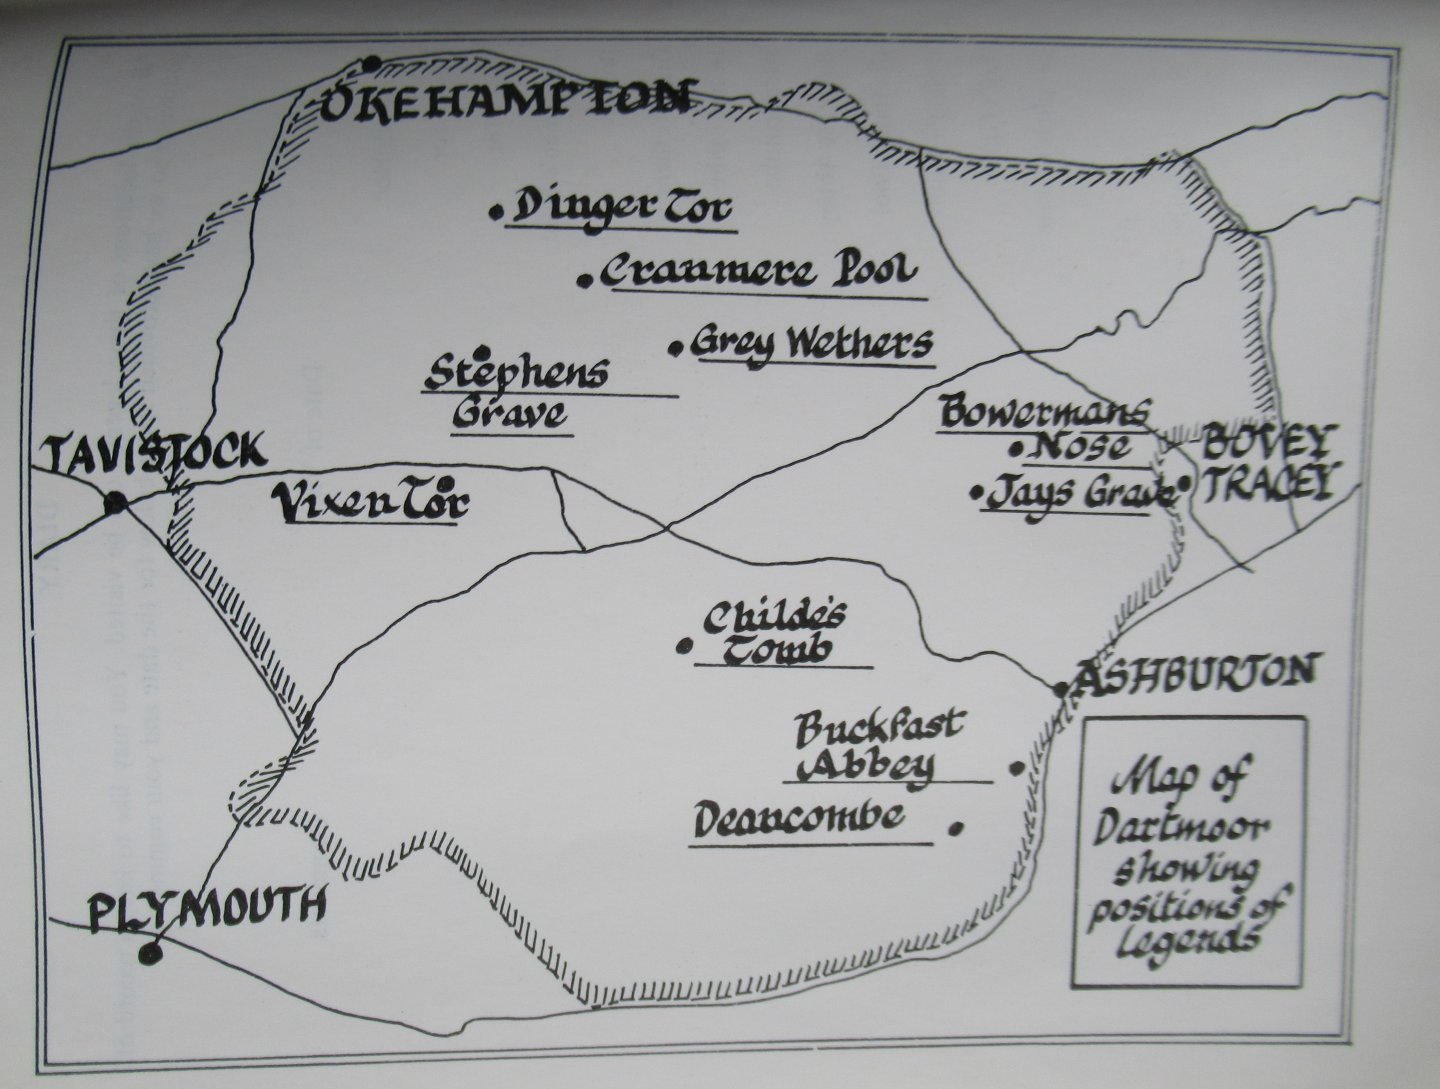 OKEHAMPTON
Dinger Tor
Cranmere Pool
Grey Wethers
Stephens
Grave
Bowermans
Nose
Jays Grave
BOVEY
TRACEY
TAVISTOCK
Vixen Tor
Childe's
Tomb
ASHBURTON
Buckfast
Abbey
Deancombe
PLYMOUTH
Map of
Dartmoor
showing
positions of
legends